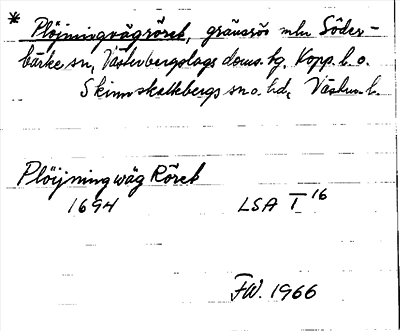 * Plöjningvägröret, gränsrös mln Söder-
bärke sn, Västerbergslags doms. tg, Kopp. l. o.
Skinnskattebergs sn o. hd, Västm. l.
Plöijningwäg Röret
1694 LSA T 16
FW. 1966